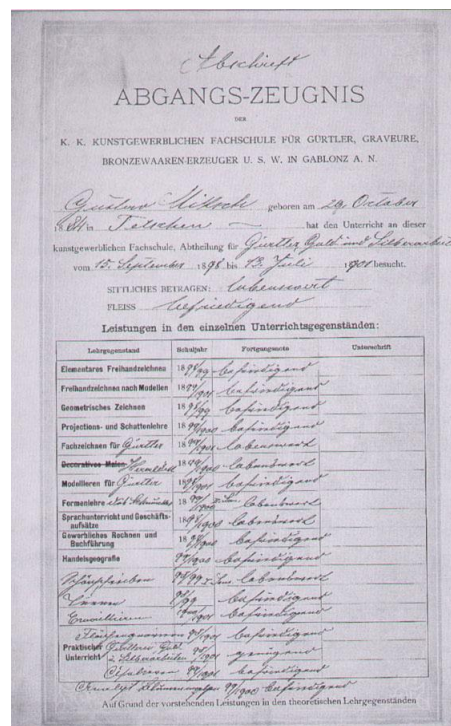 Abschrift
ABGANGS-ZEUGNIS
DER
K. K. KUNSTGEWERBLICHEN FACHSCHULE FÜR GÜRTLER, GRAVEURE,
BRONZEWAAREN-ERZEUGER U. S. W. IN GABLONZ A. N.
Gustav geboren am 29 October
1884 in Tetschen — hat den Unterricht an dieser
kunstgewerblichen Fachschule, Abtheilung für Gürtler Gold und Silberarbeit
vom 15. September 1898 bis 13. Juli 1901 besucht.
SITTLICHES BETRAGEN: lobenswert
FLEISS befriedigend
Leistungen in den einzelnen Unterrichtsgegenständen:
Lehrgegenstand Schuljahr Fortgangsnote Unterschrift
Elementares Freihandzeichnen 1898/99 befriedigend
Freihandzeichnen nach Modellen 1899/1901 befriedigend
Geometrisches Zeichnen 1898/99 befriedigend
Projections- und Schattenlehre 1899/1900 befriedigend
Fachzeichnen für Gürtler 1899/1901 lobenswert
Decoratives Malen 1899/1900 lobenswert
Modellieren für Gürtler 1898/1901 befriedigend
Formenlehre lobenswert
Sprachunterricht und Geschäfts-
aufsätze 1898/1900 lobenswert
Gewerbliches Rechnen und
Buchführung 1898/1901 befriedigend
Handelsgeografie 99/1900 befriedigend
98/99 lobenswert
98/99 befriedigend
1900/1901 befriedigend
befriedigend
Praktischer
Unterricht Gürtlerei, Gold
u. Silberarbeiten 98/1901 genügend
Ciselieren 99/1901 befriedigend
99/1900 befriedigend
Auf Grund der vorstehenden Leistungen in den theoretischen Lehrgegenständen